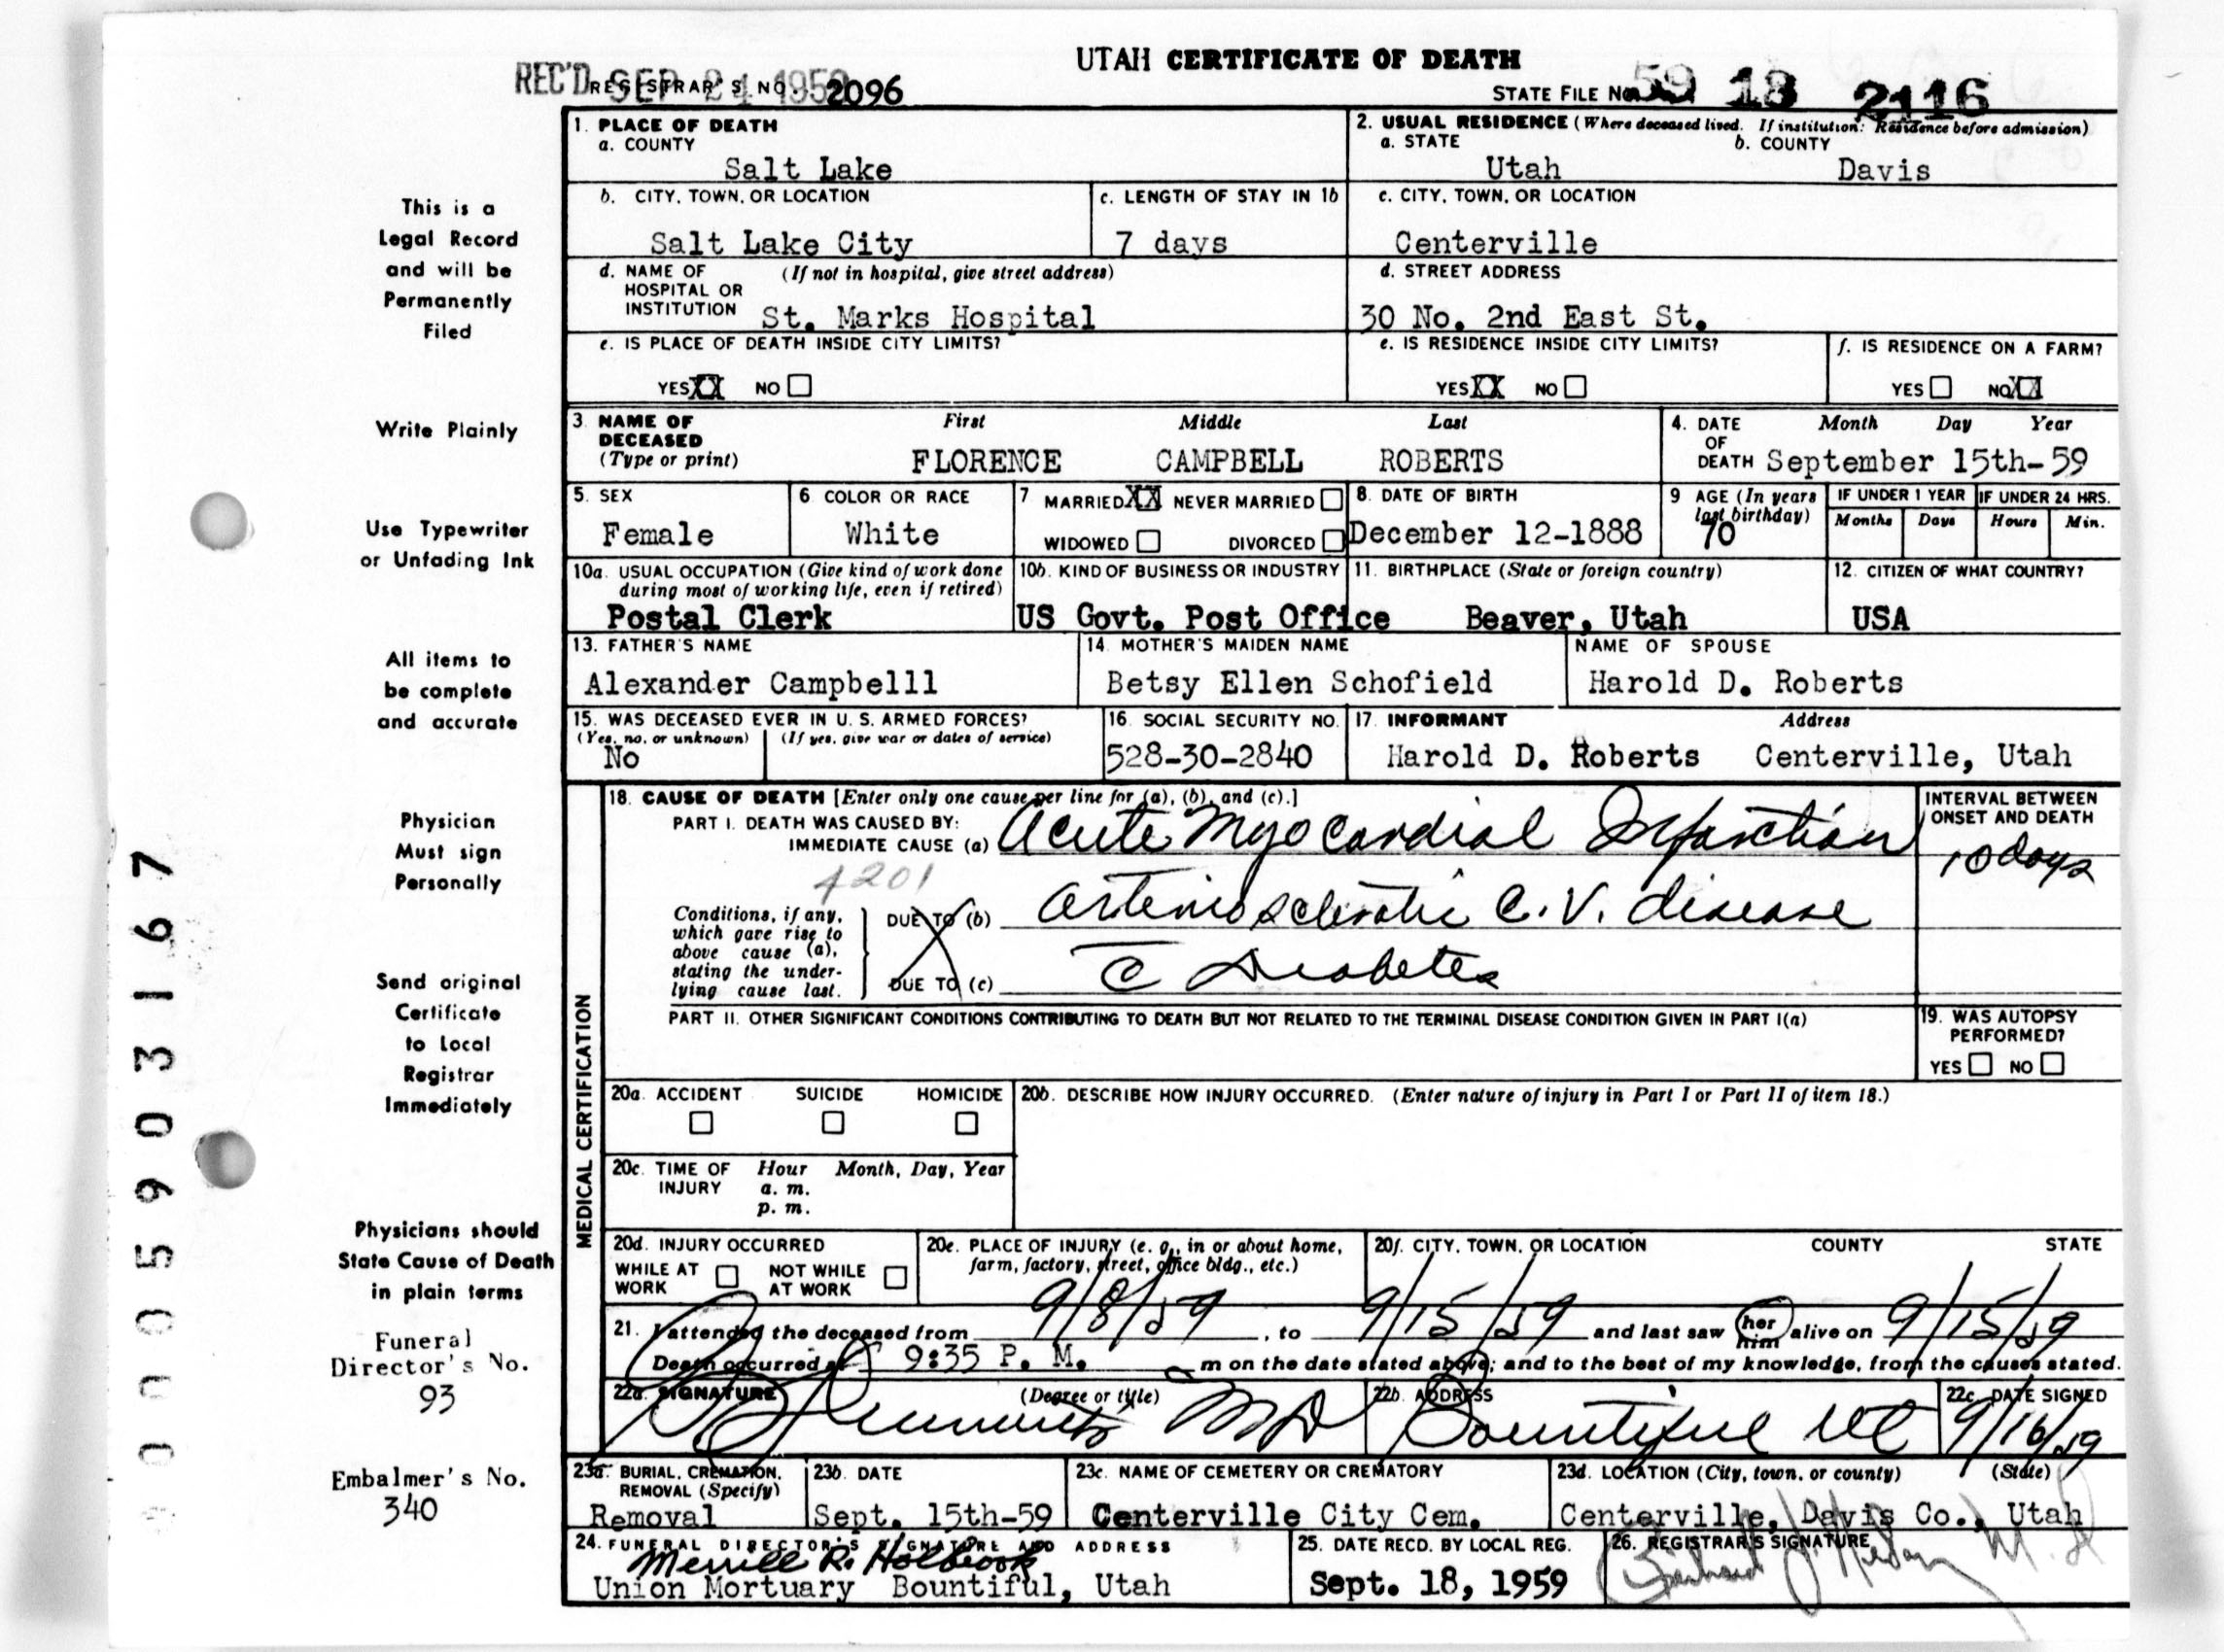 UTAH CERTIFICATE OF DEATH
REC'D SEP 24 1959 REGISTRAR'S NO. 2096
STATE FILE No. 59 18 2116
1. PLACE OF DEATH
a. COUNTY
Salt Lake
2. USUAL RESIDENCE (Where deceased lived. If institution: Residence before admission)
a. STATE b. COUNTY
Utah Davis
b. CITY, TOWN, OR LOCATION
Salt Lake City
c. LENGTH OF STAY IN 1b
7 days
c. CITY, TOWN, OR LOCATION
Centerville
d. NAME OF (If not in hospital, give street address)
HOSPITAL OR
INSTITUTION St. Marks Hospital
d. STREET ADDRESS
30 No. 2nd East St.
e. IS PLACE OF DEATH INSIDE CITY LIMITS?
YES XX NO
e. IS RESIDENCE INSIDE CITY LIMITS?
YES XX NO
f. IS RESIDENCE ON A FARM?
YES NO XX
3. NAME OF DECEASED
(Type or print)
First Middle Last
FLORENCE CAMPBELL ROBERTS
4. DATE OF DEATH
Month Day Year
September 15th-59
5. SEX
Female
6 COLOR OR RACE
White
7 MARRIED XX NEVER MARRIED
WIDOWED DIVORCED
8. DATE OF BIRTH
December 12-1888
9 AGE (In years last birthday)
70
IF UNDER 1 YEAR IF UNDER 24 HRS.
Months Days Hours Min.
10a. USUAL OCCUPATION (Give kind of work done
during most of working life, even if retired)
Postal Clerk
10b. KIND OF BUSINESS OR INDUSTRY
US Govt. Post Office
11. BIRTHPLACE (State or foreign country)
Beaver, Utah
12. CITIZEN OF WHAT COUNTRY?
USA
13. FATHER'S NAME
Alexander Campbelll
14. MOTHER'S MAIDEN NAME
Betsy Ellen Schofield
NAME OF SPOUSE
Harold D. Roberts
15. WAS DECEASED EVER IN U. S. ARMED FORCES?
(Yes, no, or unknown) (If yes, give war or dates of service)
No
16. SOCIAL SECURITY NO.
528-30-2840
17. INFORMANT Address
Harold D. Roberts Centerville, Utah
MEDICAL CERTIFICATION
18. CAUSE OF DEATH [Enter only one cause per line for (a), (b), and (c).]
PART I. DEATH WAS CAUSED BY:
IMMEDIATE CAUSE (a) Acute Myocardial Infarction
4201
Conditions, if any,
which gave rise to
above cause (a),
stating the under-
lying cause last.
DUE TO (b) arteriosclerotic C.V. disease
DUE TO (c) c̄ Diabetes
INTERVAL BETWEEN
ONSET AND DEATH
10 days
PART II. OTHER SIGNIFICANT CONDITIONS CONTRIBUTING TO DEATH BUT NOT RELATED TO THE TERMINAL DISEASE CONDITION GIVEN IN PART I(a)
19. WAS AUTOPSY
PERFORMED?
YES NO
20a. ACCIDENT SUICIDE HOMICIDE
20b. DESCRIBE HOW INJURY OCCURRED. (Enter nature of injury in Part I or Part II of item 18.)
20c. TIME OF INJURY
Hour Month, Day, Year
a. m.
p. m.
20d. INJURY OCCURRED
WHILE AT WORK NOT WHILE AT WORK
20e. PLACE OF INJURY (e. g., in or about home,
farm, factory, street, office bldg., etc.)
20f. CITY, TOWN, OR LOCATION COUNTY STATE
21. I attended the deceased from 9/8/59, to 9/15/59 and last saw her him alive on 9/15/59
Death occurred at 9:35 P. M. m on the date stated above; and to the best of my knowledge, from the causes stated.
22a. SIGNATURE (Degree or title)
MD
22b. ADDRESS
Bountiful Ut
22c. DATE SIGNED
9/16/59
23a. BURIAL, CREMATION,
REMOVAL (Specify)
Removal
23b. DATE
Sept. 15th-59
23c. NAME OF CEMETERY OR CREMATORY
Centerville City Cem.
23d. LOCATION (City, town, or county) (State)
Centerville, Davis Co., Utah
24. FUNERAL DIRECTOR'S SIGNATURE AND ADDRESS
Merrill R. Holbrook
Union Mortuary Bountiful, Utah
25. DATE RECD. BY LOCAL REG.
Sept. 18, 1959
26. REGISTRAR'S SIGNATURE
This is a
Legal Record
and will be
Permanently
Filed
Write Plainly
Use Typewriter
or Unfading Ink
All items to
be complete
and accurate
Physician
Must sign
Personally
Send original
Certificate
to Local
Registrar
Immediately
Physicians should
State Cause of Death
in plain terms
Funeral
Director's No.
93
Embalmer's No.
340
0005903167